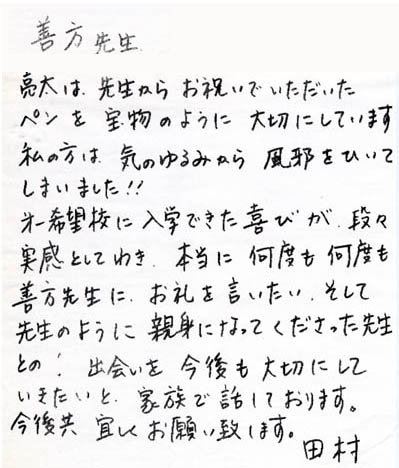 善方先生
亮太は、先生からお祝いでいただいた
ペンを宝物のように大切にしています
私の方は、気のゆるみから風邪をひいて
しまいました!!
才一希望校に入学できた喜びが、段々
実感としてわき、本当に何度も何度も
善方先生に、お礼を言いたい、そして
先生のように親身になってくださった先生
との! 出会いを今後も大切にして
いきたいと、家族で話しております。
今後共宜しくお願い致します。
田村